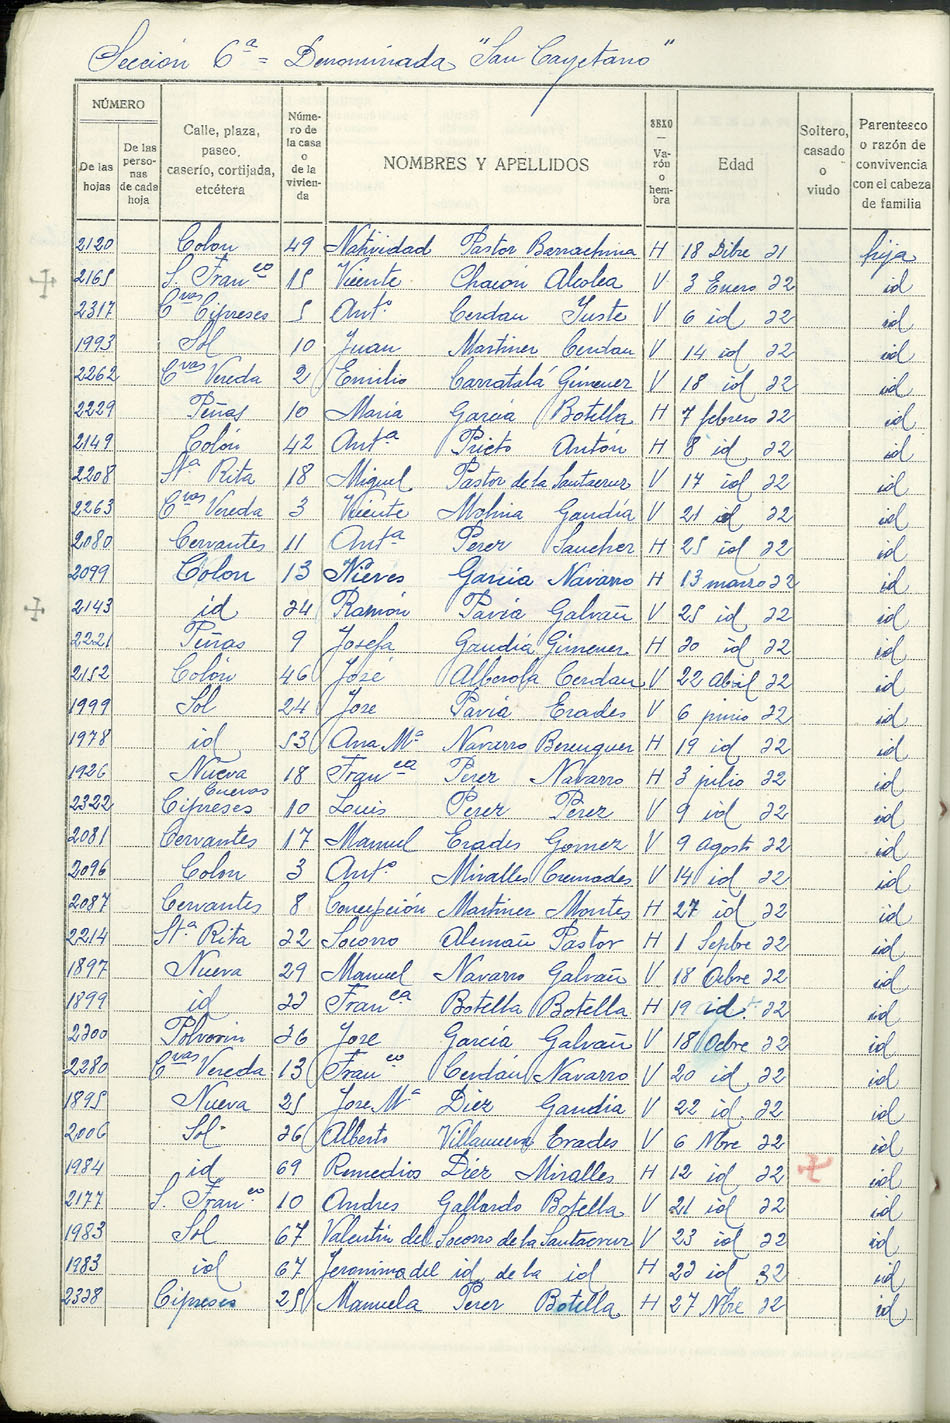 Sección 6ª = Denominada "San Cayetano"
NÚMERO
De las hojas
De las personas de cada hoja
Calle, plaza, paseo, caserío, cortijada, etcétera
Número de la casa o de la vivienda
NOMBRES Y APELLIDOS
SEXO — Varón o hembra
Edad
Soltero, casado o viudo
Parentesco o razón de convivencia con el cabeza de familia
2120 Colon 49 Natividad Pastor Berrachina H 18 Dibre 31 hija
2165 S. Franco 15 Vicente Chacón Alcolea V 3 Enero 32 id
2317 Cvas Cipreses 5 Antº Cerdan Juste V 6 id 32 id
1993 Sol 10 Juan Martiner Cerdan V 14 id 32 id
2262 Cvas Vereda 2 Emilio Carratalá Gimener V 18 id 32 id
2229 Peñas 10 Maria Garcia Botella H 7 febrero 32 id
2149 Colón 42 Antª Prieto Antón H 8 id 32 id
2208 Stª Rita 18 Miguel Pastor de la Santacruz V 17 id 32 id
2263 Cvas Vereda 3 Vicente Molina Gandía V 21 id 32 id
2080 Cervantes 11 Antª Perer Sancher H 25 id 32 id
2099 Colon 13 Nieves Garcia Navarro H 13 marzo 32 id
2143 id 34 Ramón Pavia Galvañ V 25 id 32 id
2221 Peñas 9 Josefa Gandía Gimener H 30 id 32 id
2152 Colón 46 José Alberola Cerdan V 22 Abril 32 id
1999 Sol 24 Jose Pavia Erades V 6 junio 32 id
1978 id 53 Ana Mª Navarro Berenguer H 19 id 32 id
1926 Nueva 18 Franca Perer Navarro H 3 julio 32 id
2322 Cuevas Cipreses 10 Luis Perer Perer V 9 id 32 id
2081 Cervantes 17 Manuel Erades Gomez V 9 agosto 32 id
2096 Colon 3 Antº Miralles Cremades V 14 id 32 id
2087 Cervantes 8 Concepción Martiner Montes H 27 id 32 id
2214 Stª Rita 32 Socorro Alemañ Pastor H 1 Sepbre 32 id
1897 Nueva 29 Manuel Navarro Galvañ V 18 Octbre 32 id
1899 id 33 Franca Botella Botella H 19 id. 32 id
2300 Polvorin 36 Jose García Galvañ V 18 Ocbre 32 id
2280 Cvas Vereda 13 Franco Cerdán Navarro V 20 id 32 id
1895 Nueva 25 Jose Mª Diez Gandia V 22 id. 32 id
2006 Sol 36 Alberto Villanueva Erades V 6 Nbre 32 id
1984 id 69 Remedios Diez Miralles H 12 id 32 id
2177 S. Franco 10 Andres Gallardo Botella V 21 id 32 id
1983 Sol 67 Valentin del Socorro de la Santacruz V 23 id 32 id
1983 id 67 Jeronima del id de la id H 23 id 32 id
2338 Cipreses 25 Manuela Perer Botella H 27 Nbre 32 id